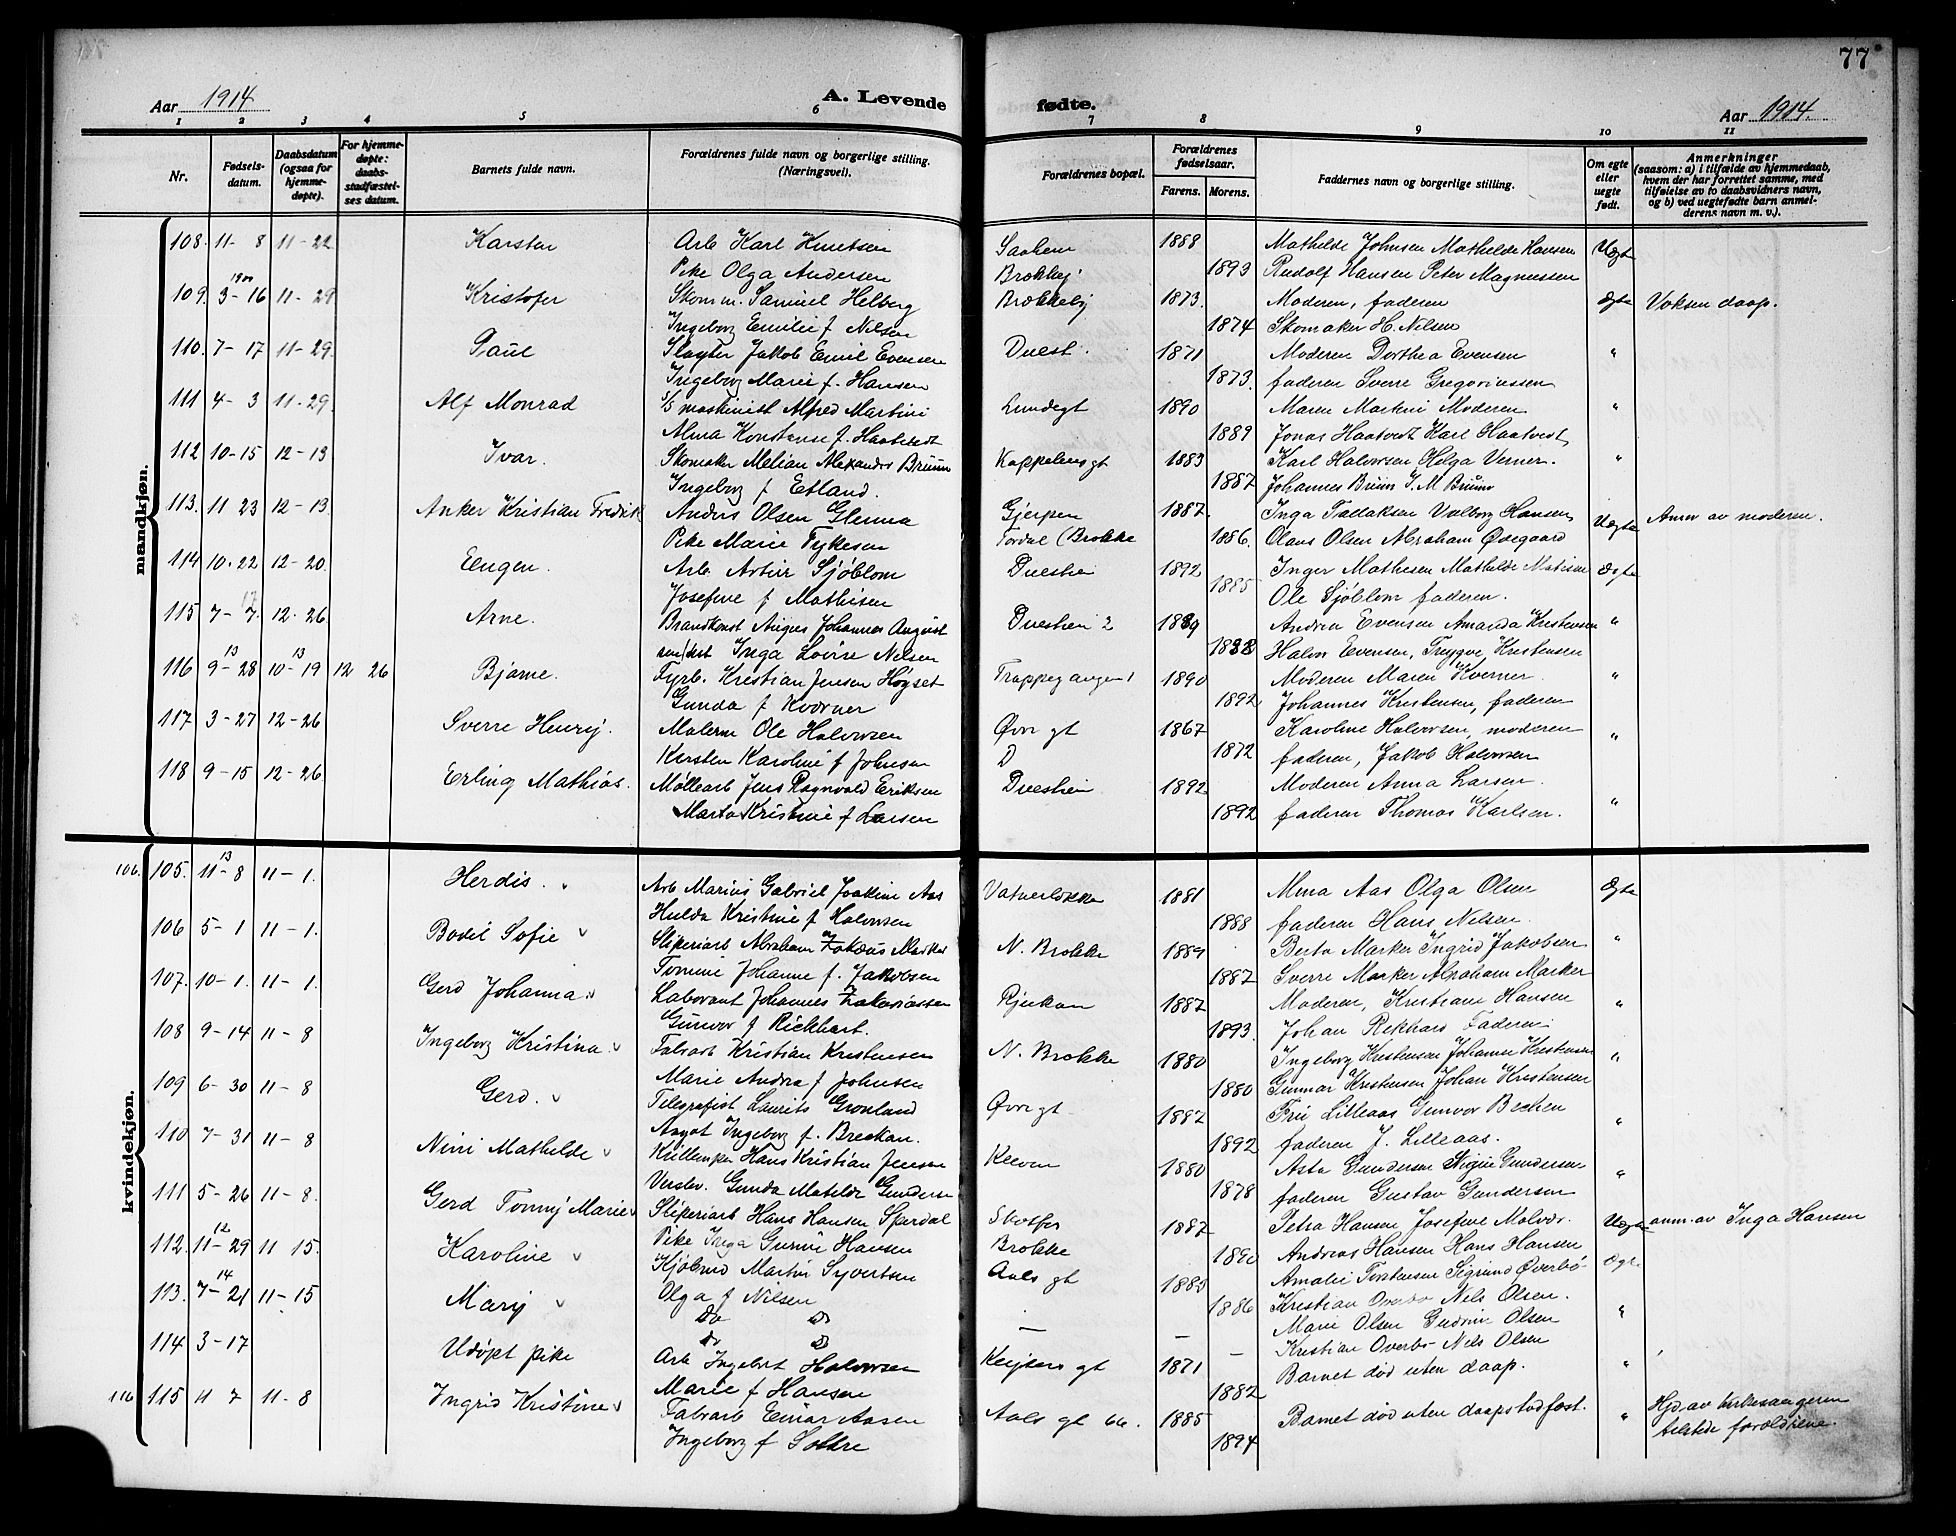 77
Aar 1914 A. Levende fødte. Aar 1914.
1 2 3 4 5 6 7 8 9 10 11
Nr. Fødsels-datum. Daabsdatum (ogsaa for hjemme-døpte). For hjemme-døpte: daabs-stadfæstel-ses datum. Barnets fulde navn. Forældrenes fulde navn og borgerlige stilling. (Næringsvei). Forældrenes bopæl. Forældrenes fødselsaar. Farens. Morens. Faddernes navn og borgerlige stilling. Om egte eller uegte født. Anmerkninger (saasom: a) i tilfælde av hjemmedaab, hvem der har forrettet samme, med tilføielse av to daabsvidners navn, og b) ved uegtefødte barn anmel-derens navn m. v.).
mandkjøn.
108. 11- 8 11-22 Karsten Arb Karl Knutsen 1888 Mathilde Johnsen Mathilde Hansen Uegte
Pike Olga Andersen 1893 Rudolf Hansen Peter Magnussen
109. 3-16 11-29 Kristofer Skom m. Samuel Helberg Brekkebÿ 1873. Moderen, faderen Ægte Voksen daap.
Ingeborg Emilie f Nilsen 1874 Skomaker H. Nilsen
110. 7-17 11-29. Paul Slagter Jakob Emil Evensen Duest. 1871 Moderen Dorthea Evensen "
Ingeborg Marie f. Hansen 1873. faderen Sverre Gregoriussen
111 4- 3 11-29. Alf Monrad S/S maskinist Alfred Martini Lundegt 1890 Maren Martini Moderen "
Alma Konstanse f. Haatvedt 1889 Jonas Haatvedt Karl Haatvedt
112 10-15 12-13 Ivar. Skomaker Melian Aleksander Bruun Kappelensgt 1883 Karl Halvorsen Helga Verner. "
Ingeborg f Etland. 1887 Johannes Bruun J. M Bruun
113. 11 23 12-13 Anker Kristian Fredrik Anders Olsen Glenna Gjerpen 1887. Inga Valborg Hansen Uegte Anm av moderen.
Pike Marie Tykesen Tordal (Brekke 1886. Olaus Olsen Abraham Ødegaard
114 10.22 12-20. Eugen. Arb. Artur Sjöblom Duestien 1892 Inger Mathesen Mathilde Ægte
Josefine f Mathisen 1885 Ole Sjöblom faderen.
115 7-7. 12.26 Arne. Brandkonst August Duestien 2 1889 Andrea Evensen Amanda Kristensen "
Inga Lovise Nilsen Halvor Evensen, Trygve Kristensen
116 9-28 13 10-19 13 12 26 Bjarne. Fyrb. Kristian Jensen Høgset Trappegangen 1 1890 Moderen Maren Kverner. "
Gunda f Kværner 1892 Johannes Kristensen, faderen
117 3-27 12-26 Sverre Henrÿ. Malerm Ole Halvorsen Øvre gt 1867 Karoline Halvorsen, moderen "
Kersten Karoline f Johnsen D 1872 faderen, Jakob Halvorsen
118 9-15 12-26. Erling Mathias. Møllearb Jens Ragnvald Eriksen Duestien 1892 Moderen Anna Larsen. "
Marta Kristine f Larsen 1892 faderen Thomas Karlsen.
kvindekjøn.
106. 105. 11-8 13 11-1. Herdis. Arb Marius Gabriel Joakim Aas 1881 Alma Aas Olga Olsen Ægte
Hulda Kristine f Halvorsen 1888 faderen Hans Nilsen.
106 5-1 11-1. Bodil Sofie Sliperiarb Abraham Zakæus Marker N. Brekke 1889 Berta Marker Ingrid Jakobsen "
Tomine Johanne f. Jakobsen 1887 Sverre Marker Abraham Marker
107. 10-1. 11-1. Gerd Johanna Laborant Johannes Zakariassen Rjukan 1887 Moderen, Kristiane Hansen "
Gunvor f Rickhart. 1893. Johan Rekhard Faderen
108 9-14 11-8 Ingeborg Kristina Fabarb Kristian Kristensen N. Brekke 1880 Ingeborg Kristensen Johanne Kristensen "
Marie Andrea f Johnsen 1880 Gunnar Kristensen Johan Kristensen
109 6-30 11-8 Gerd. Telegrafist Laurits Grønland Øvre gt 1887 Fru Lilleaas Gunvor "
Aagot Ingeborg f. 1892 faderen J. Lilleaas.
110 7-31 11-8 Nini Mathilde Hans Kristian Jensen Kleven 1880 Asta Gundersen Signe Gundersen "
Gunda Matilde Gunderse 1878 faderen Gustav Gundersen
111 5-26 11-8. Gerd Tonnÿ Marie Sliperiarb Hans Hansen Spærdal Skotfos 1887 Petra Hansen Josefine Uegte anm. av Inga Hansen
Pike Inga Gurine Hansen Brekke 1890 Andreas Hansen Hans Hansen
112. 11-29 12 11 15. Karoline Kjøbmd Martin Syvertsen Aalsgt 1885 Amalie Torstensen Sigrund Øverbø Ægte
Olga f Nilsen 1886 Kristian Overbo Nils Olsen.
113. 7-21 14 11-15 Marÿ Do Do - Marie Olsen Gudrun Olsen "
Do Do - - Kristian Overbo Nils Olsen
114 3-17 Udøpt pike Arb Ingebret Halvorsen Keÿsers gt 1871 Barnet död uten daap. "
Marie f Hansen 1882
116 115 11 7 11-8 Ingrid Kristine Fabrarb Einar Aasen Aals gt 66. 1885 Barnet död uten daapstadfæst. " Hjd. av kirkesangeren
Ingeborg f Soltre 1894 tilstede forældrene.